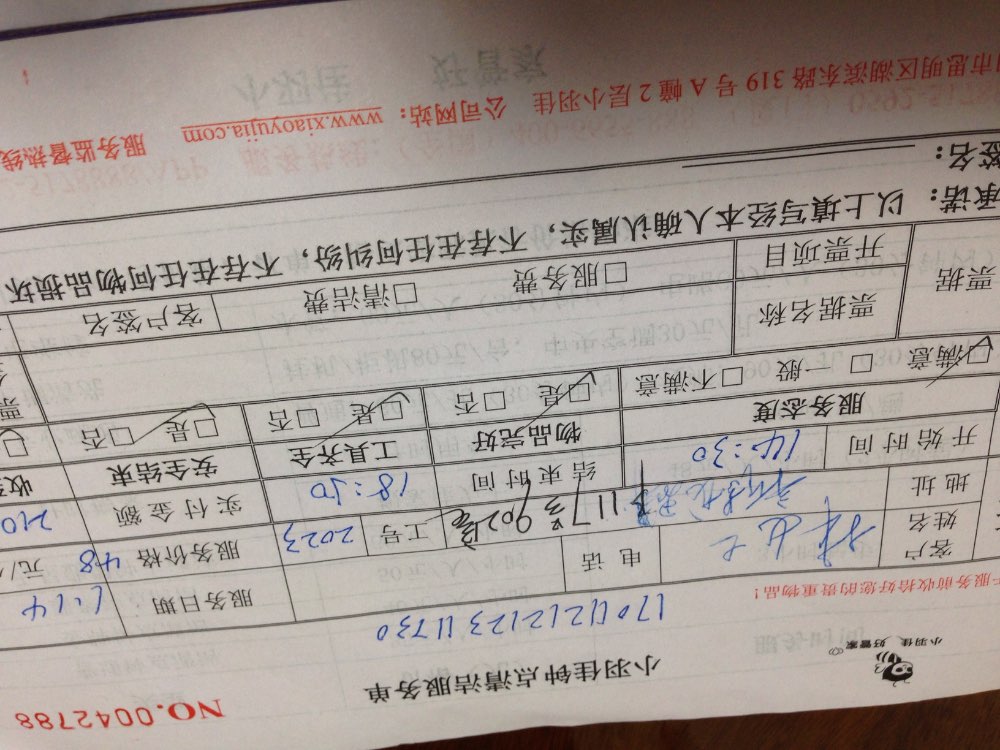 NO.0042788
小羽佳 好管家
小羽佳钟点清洁服务单
170112123 11730
服务前收拾好您的贵重物品!
服务日期 1.14
客户姓名 电话 工号 2023 服务价格 48 元/
地址 117号902室 实付金额 210
开始时间 14:30 结束时间 18:30 安全结束
服务态度 物品完好 工具齐全
□满意 □一般 □不满意 □是 □否 □是 □否 □是 □否
票据 票据名称
开票项目 □服务费 □清洁费 客户签名
承诺:以上填写经本人确认属实,不存在任何纠纷,不存在任何物品损坏
签名:
市思明区湖滨东路 319 号 A 幢 2 层小羽佳 公司网站:www.xiaoyujia.com 服务监督热线